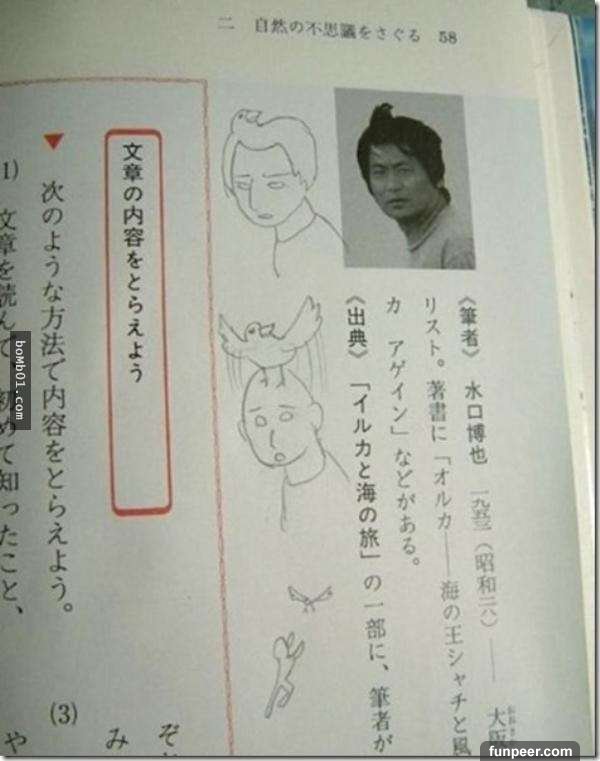 二 自然の不思議をさぐる 58
《筆者》 水口博也 一九五三(昭和二八)── 大阪
リスト。著書に「オルカ──海の王シャチと風
カ アゲイン」などがある。
《出典》 「イルカと海の旅」の一部に、筆者が
文章の内容をとらえよう
▼ 次のような方法で内容をとらえよう。
1) 文章を読んで 初めて知ったこと、
(3)
ぞ
み
や
boMb01.com
funpeer.com